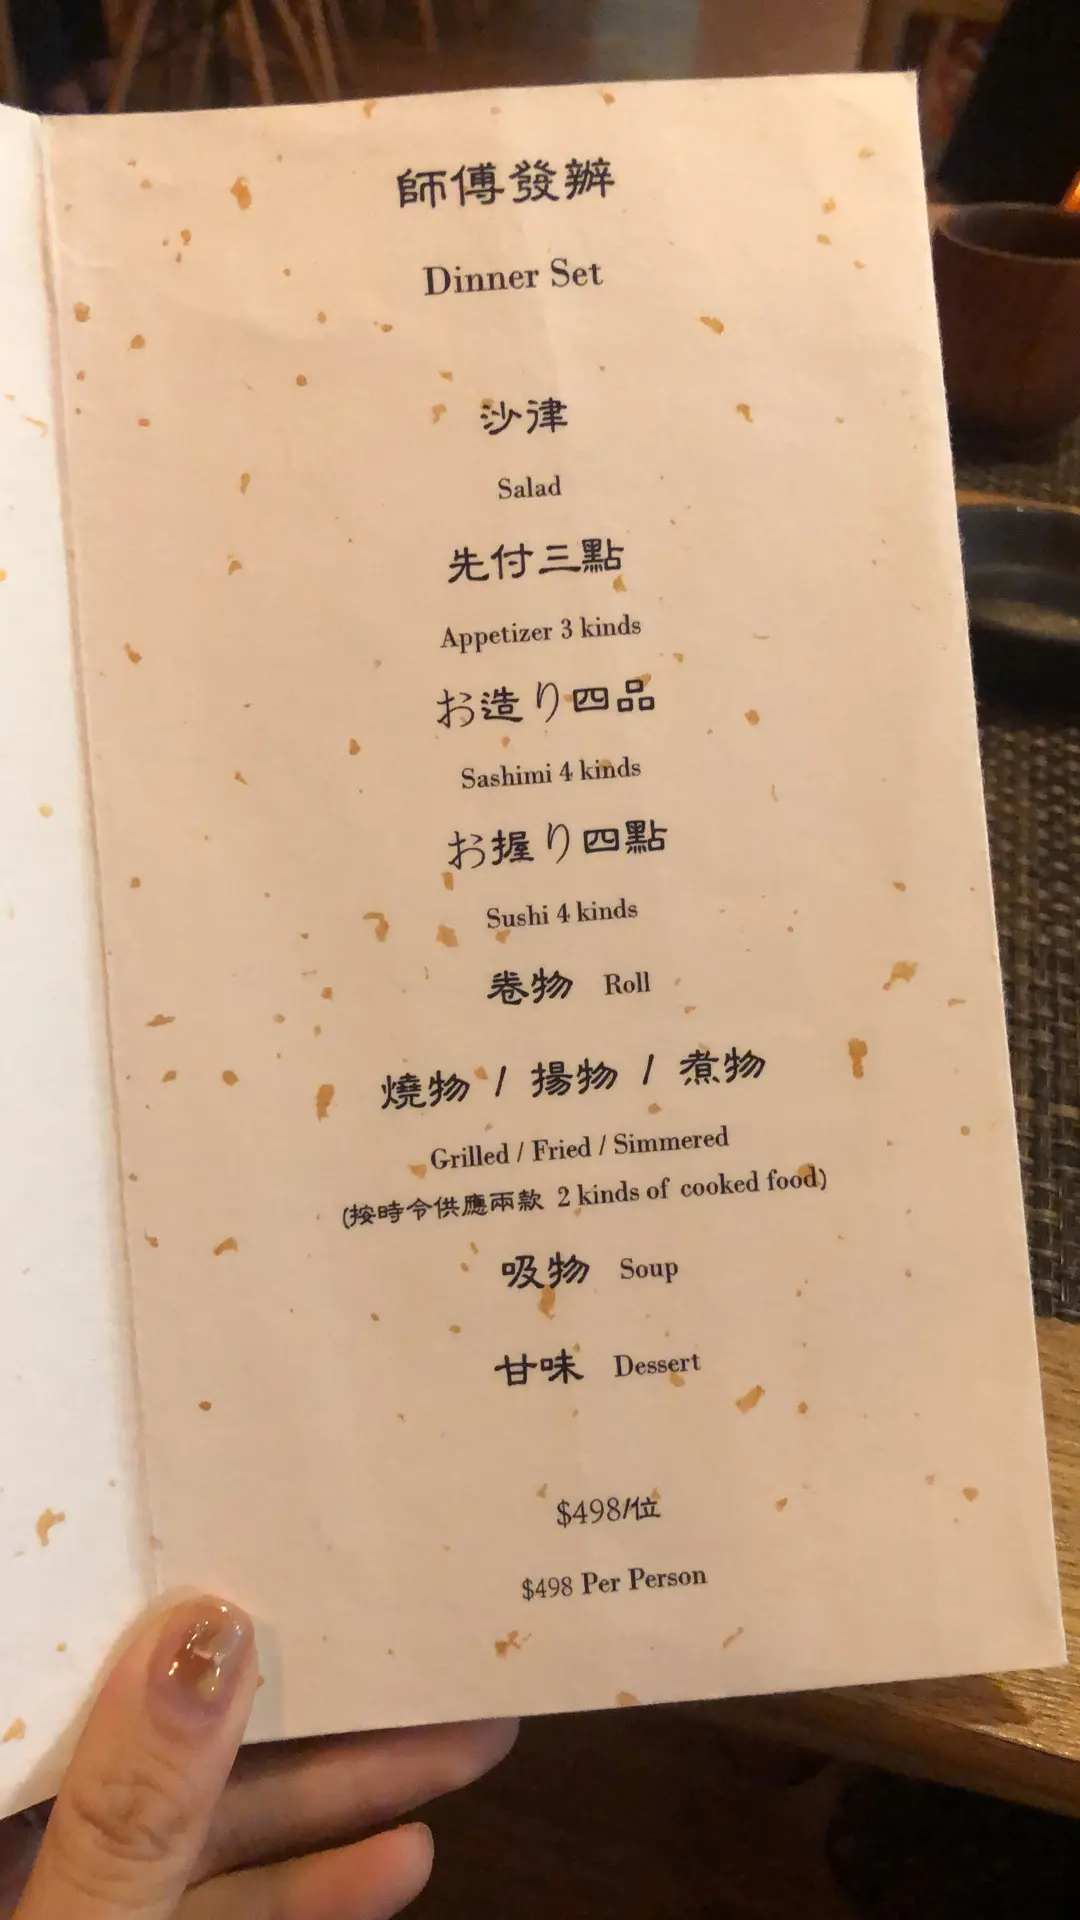 師傅發辦
Dinner Set
沙律
Salad
先付三點
Appetizer 3 kinds
お造り四品
Sashimi 4 kinds
お握り四點
Sushi 4 kinds
卷物 Roll
燒物 / 揚物 / 煮物
Grilled / Fried / Simmered
(按時令供應兩款 2 kinds of cooked food)
吸物 Soup
甘味 Dessert
$498/位
$498 Per Person